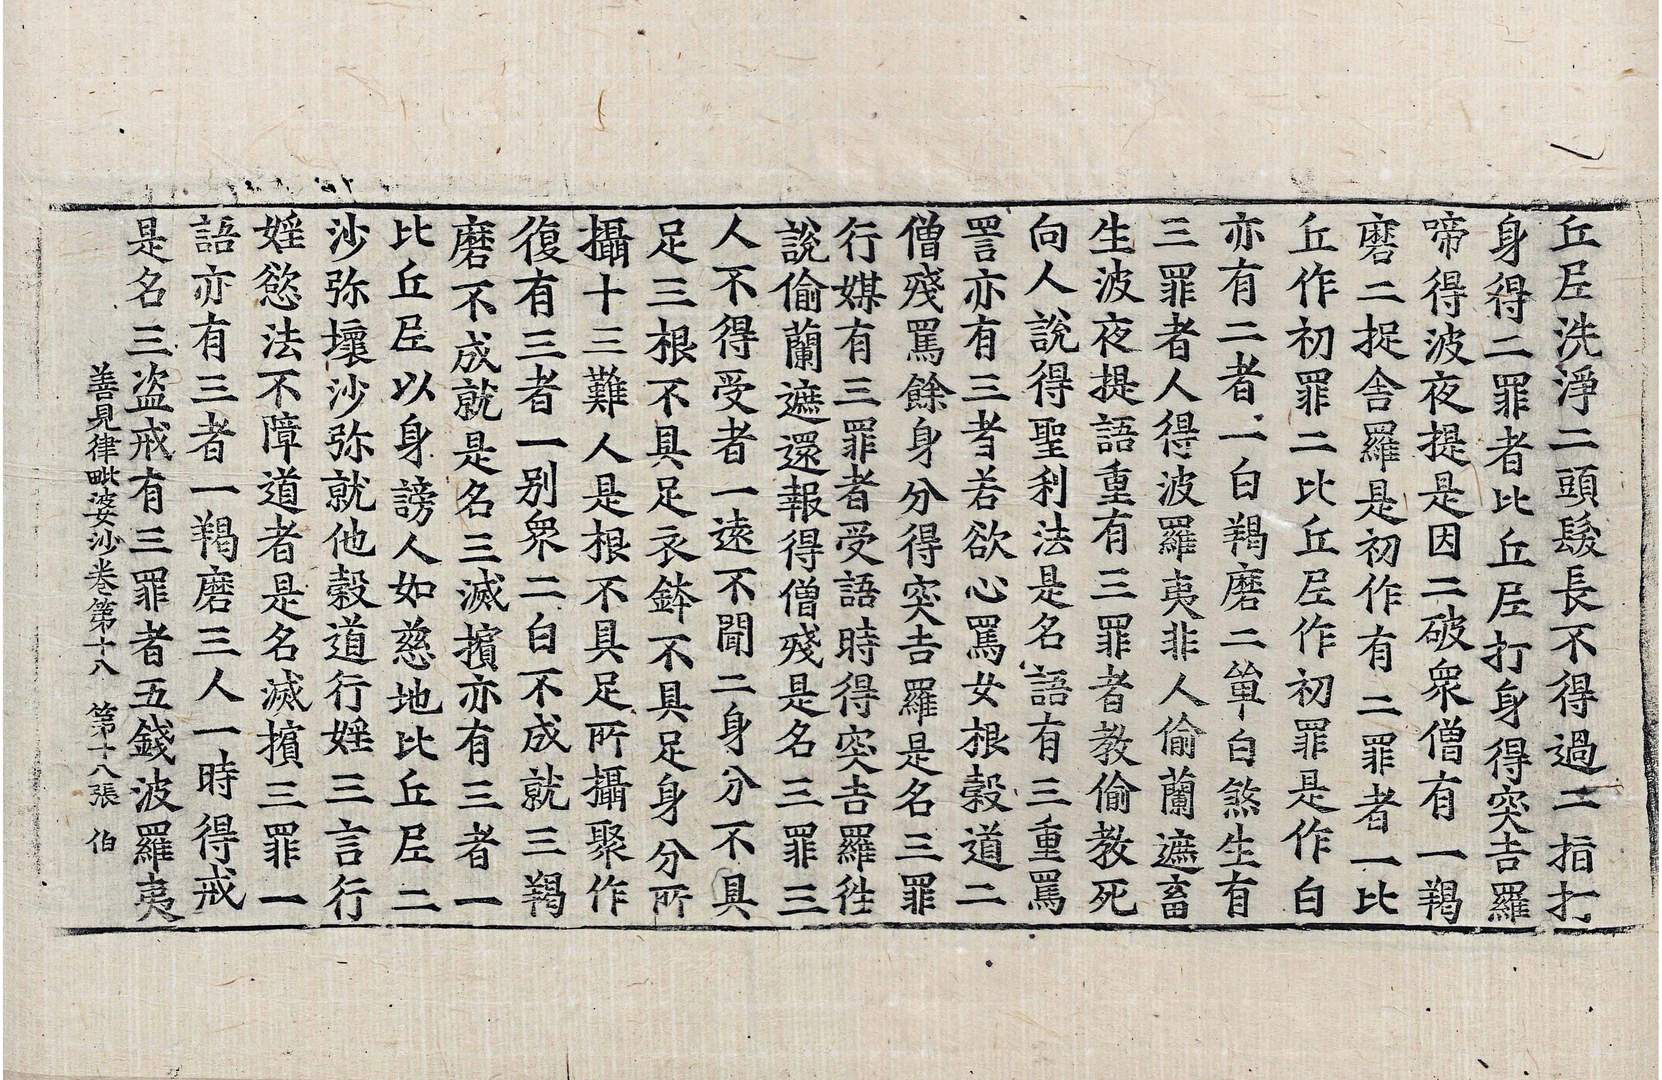 丘尼洗淨二頭髮長不得過二指打
身得二罪者比丘尼打身得突吉羅
啼得波夜提是因二破衆僧有一羯
磨二捉舍羅是初作有二罪者一比
丘作初罪二比丘尼作初罪是作白
亦有二者一白羯磨二單白煞生有
三罪者人得波羅夷非人偷蘭遮畜
生波夜提語重有三罪者教偷教死
向人說得聖利法是名語有三重罵
詈亦有三者若欲心罵女根穀道二
僧殘罵餘身分得突吉羅是名三罪
行媒有三罪者受語時得突吉羅往
說偷蘭遮還報得僧殘是名三罪三
人不得受者一遠不聞二身分不具
足三根不具足衣鉢不具足身分所
攝十三難人是根不具足所攝聚作
復有三者一別衆二白不成就三羯
磨不成就是名三滅擯亦有三者一
比丘尼以身謗人如慈地比丘尼二
沙弥壞沙弥就他穀道行婬三言行
婬慾法不障道者是名滅擯三罪一
語亦有三者一羯磨三人一時得戒
是名三盜戒有三罪者五錢波羅夷
善見律毗婆沙卷第十八 第十八張 伯